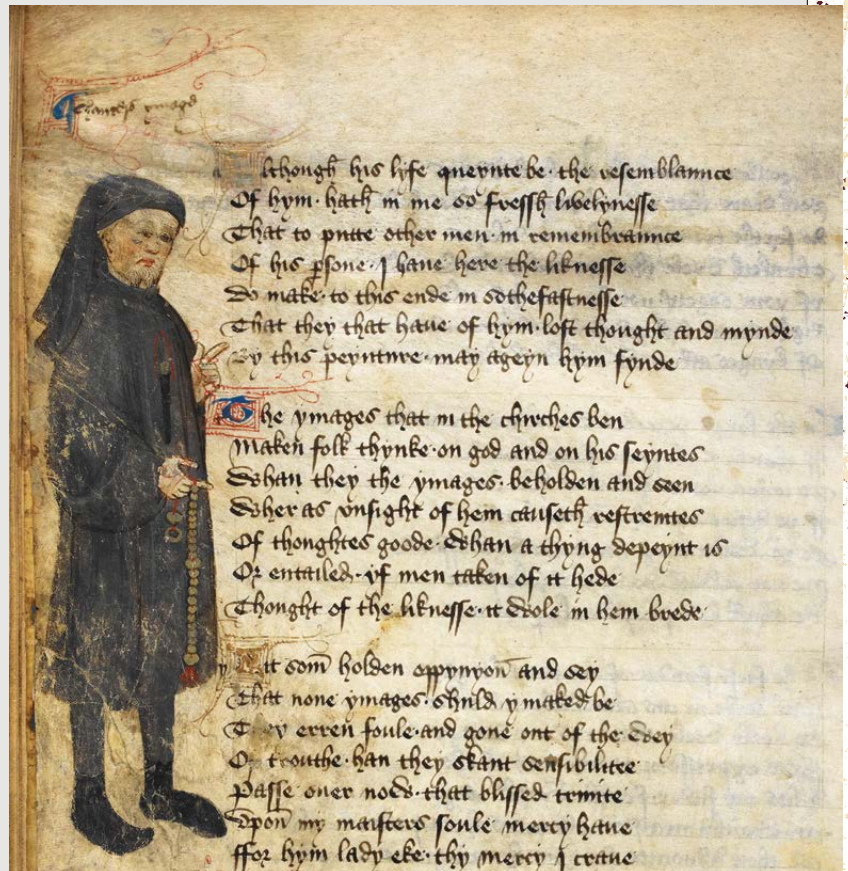 Chaucers ymage
Although his lyfe queynte be · the resemblaunce
Of hym · hath in me so fressh livelynesse
That to putte other men · in remembraunce
Of his p̱sone · I haue here the liknesse
Do make · to this ende in sothefastnesse
That they that haue of hym · lost thought and mynde
By this peynture · may ageyn hym fynde
The ymages that in the chirches ben
Maken folk thynke · on god and on his seyntes
Whan they the ymages · beholden and seen
Wher as vnsight of hem causeth restreintes
Of thoghtes goode · Whan a thyng depeynt is
Or entailed · yf men taken of it hede
Thought of the liknesse · it wole in hem brede
yit som̄ holden oppynyon̄ and sey
That none ymages · shuld y maked be
They erren foule · and gone out of the wey
Of trouthe · han they skant sensibilitee
Passe ouer now · that blissed trinite
Vpon̄ my maisters soule mercy haue
ffor hym lady eke · thy mercy I craue